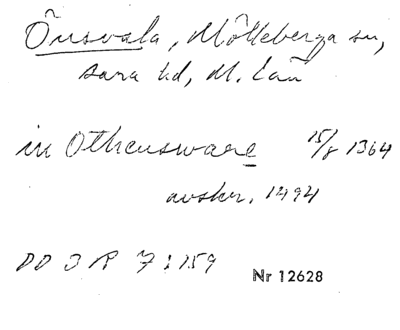 Önsvala, Mölleberga sn,
Bara hd, M. län
in Othensware 15/8 1364
avskr. 1494
DD 3 R 7:159
Nr 12628